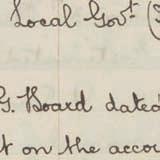 Local Govt. (
G. Board dated
t on the accou